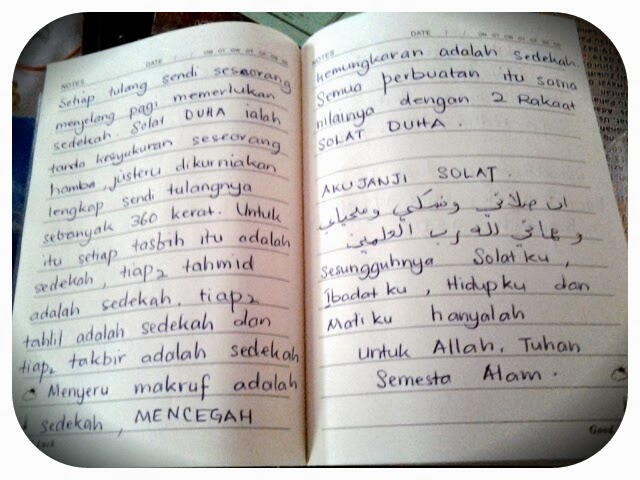 NOTES DATE / /
Setiap tulang sendi seseorang
menjelang pagi memerlukan
sedekah. Solat DUHA ialah
tanda kesyukuran seseorang
hamba, justeru dikurniakan
lengkap sendi tulangnya
sebanyak 360 kerat. Untuk
itu setiap tasbih itu adalah
sedekah, tiap2 tahmid
adalah sedekah, tiap2
tahlil adalah sedekah dan
tiap2 takbir adalah sedekah
Menyeru makruf adalah
sedekah, MENCEGAH
NOTES DATE / /
kemungkaran adalah sedekah.
Semua perbuatan itu sama
nilainya dengan 2 Rakaat
SOLAT DUHA.
AKUJANJI SOLAT.
ان صلاتي ونسكي ومحياي
ومماتي لله رب العلمين
Sesungguhnya Solatku,
Ibadatku, Hidupku dan
Matiku hanyalah
Untuk Allah, Tuhan
Semesta Alam.
Good